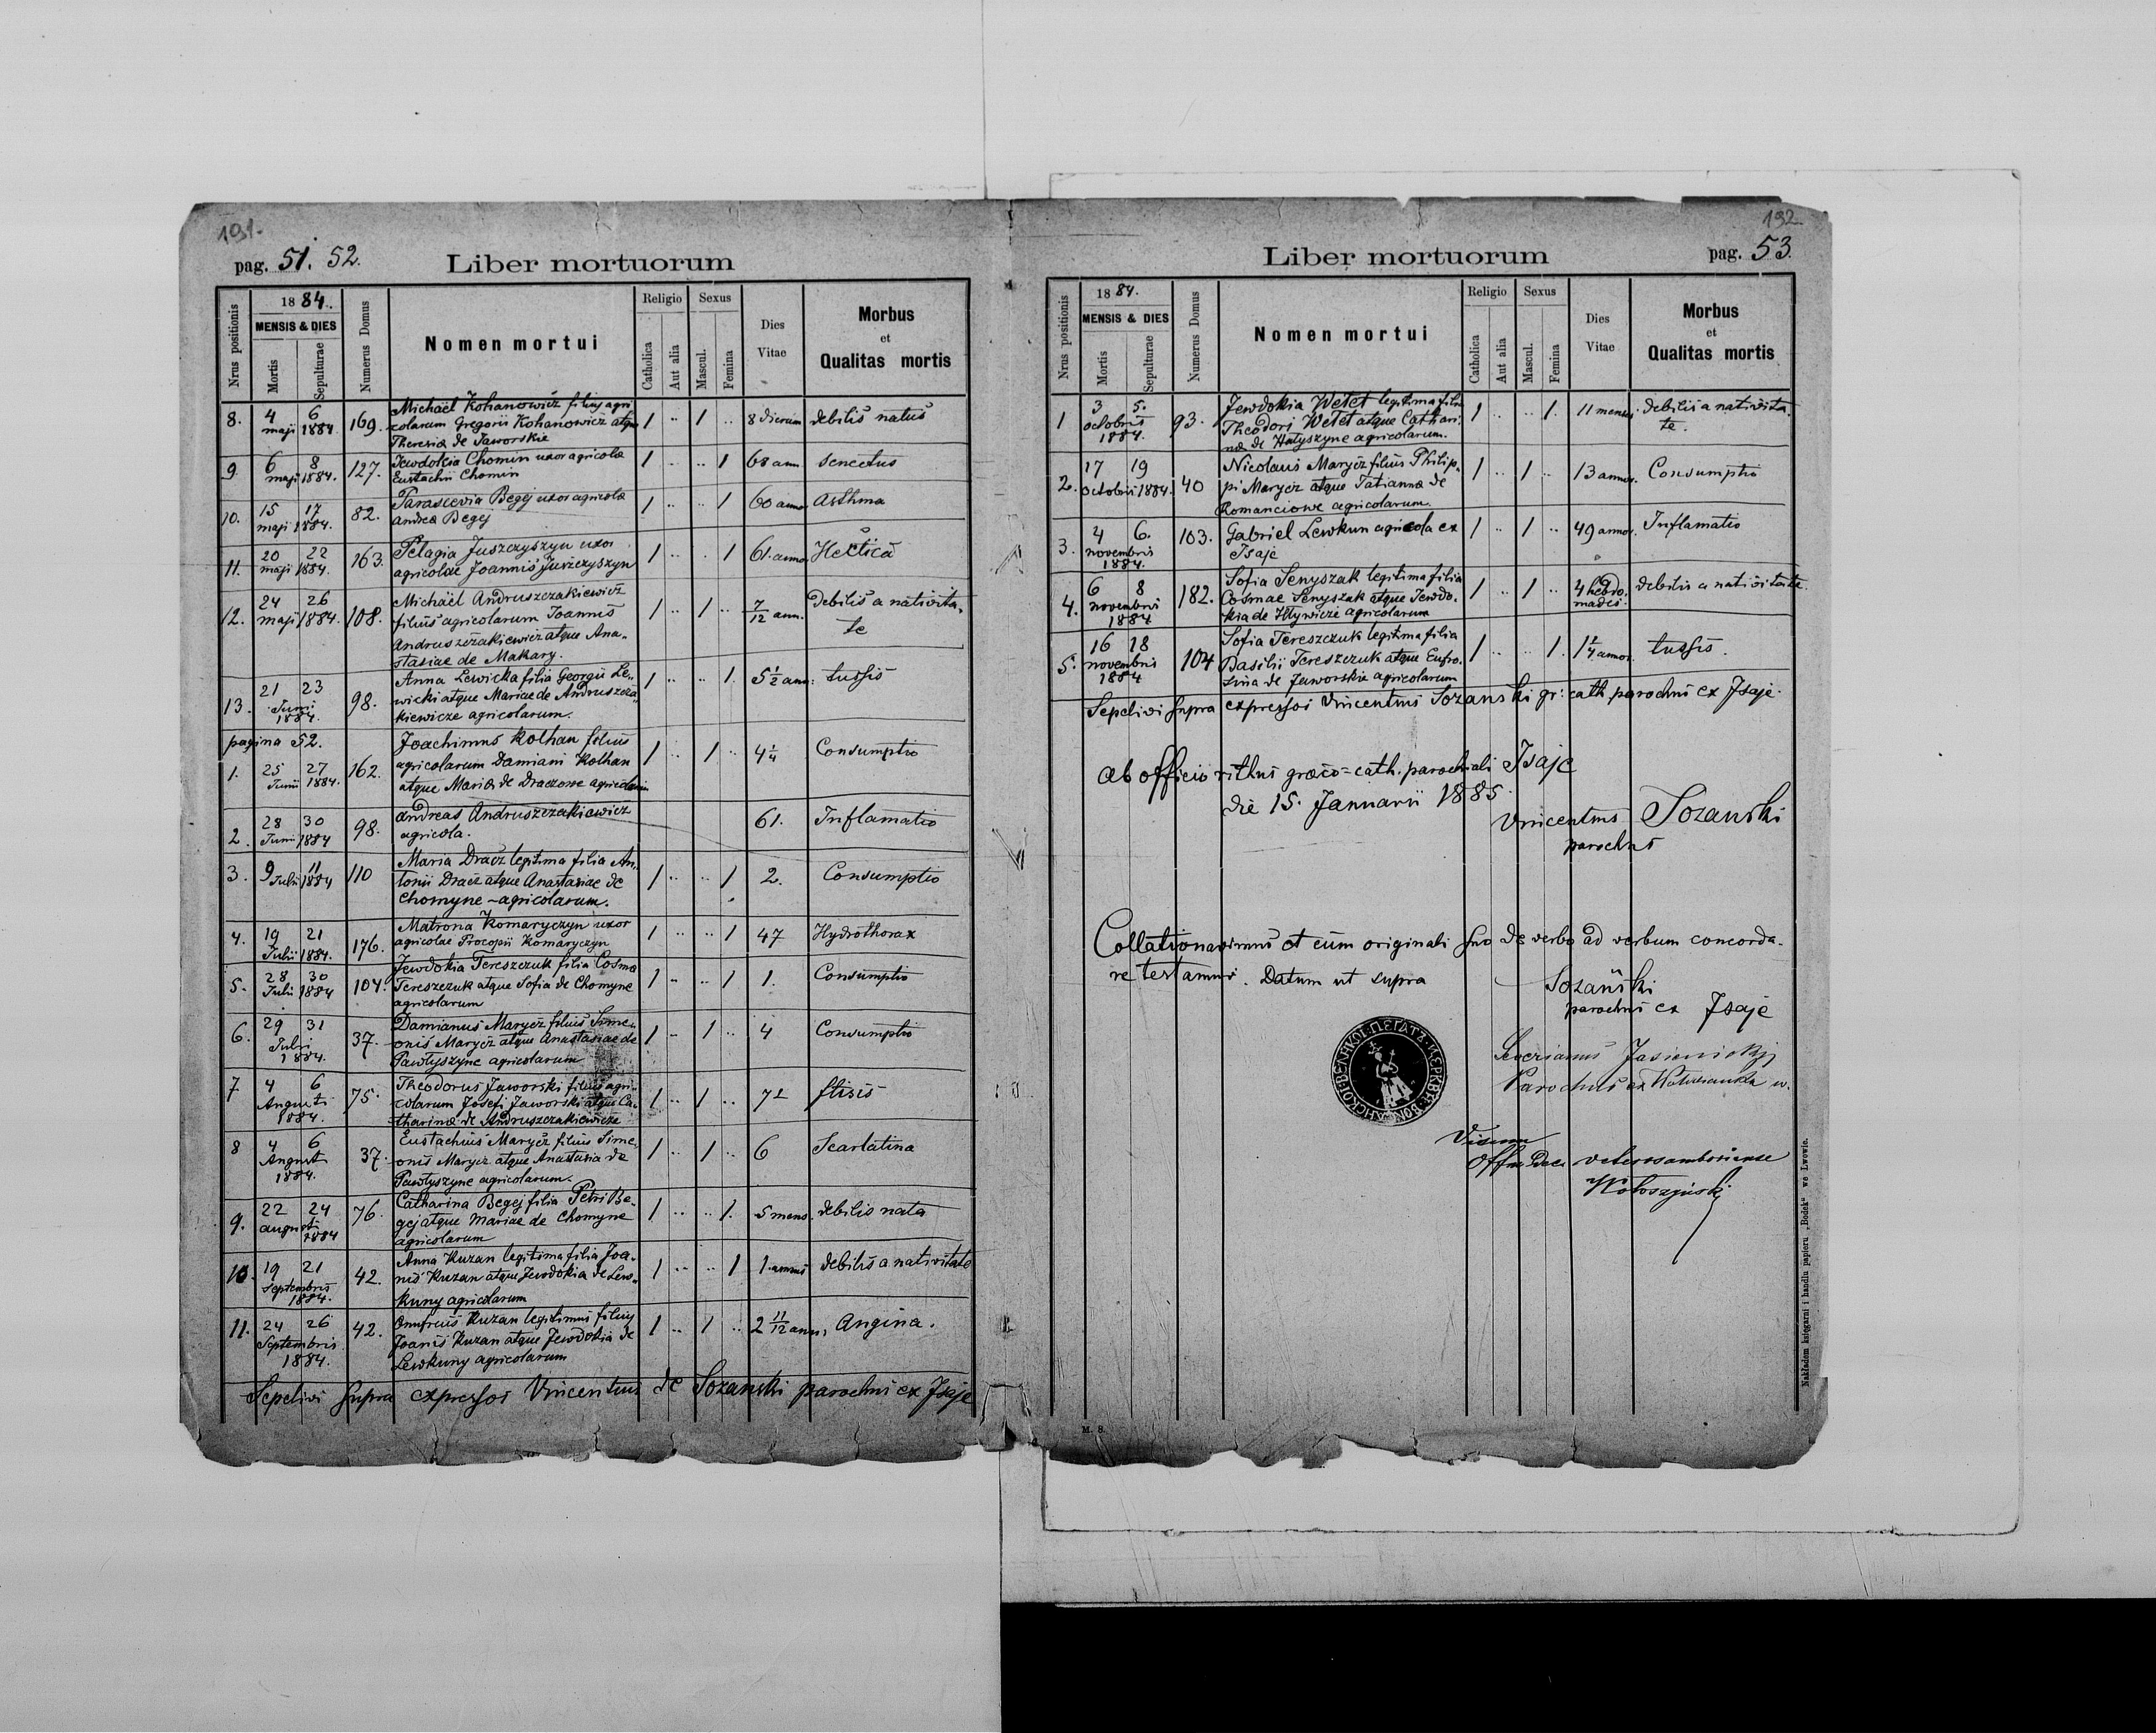 191.
pag. 51. 52.
Liber mortuorum
Nrus positionis
1884.
MENSIS & DIES
Mortis
Sepulturae
Numerus Domus
Nomen mortui
Religio
Catholica
Aut alia
Sexus
Mascul.
Femina
Dies
Vitae
Morbus
et
Qualitas mortis
8. 4 6 169. Michaël Kohanowicz filius agri
maji 1884. colarum Gregorii Kohanowicz atque 1 .. 1 .. 8 dierum debilis natus
Theresiæ de Jaworskie
9 6 8 127. Jewdokia Chomin uxor agricolæ 1 .. .. 1 68 ann senectus
maji 1884. Eustachii Chomin
10. 15 17 82. Parascevia Begej uxor agricolæ 1 .. .. 1 60 anno Asthma
maji 1884. Andreæ Begej
11. 20 22 163. Pelagia Juszczyszyn uxor 1 .. .. 1 61. anno Hectica
maji 1884. agricolae Joannis Juszczyszyn
12. 24 26 108. Michaël Andruszczakiewicz
maji 1884. filius agricolarum Joannis 1 .. 1 .. 7/12 ann. Debilis a nativita-
Andruszczakiewicz atque Ana- te
stasiae de Makary.
13. 21 23 98. Anna Lewicka filia Georgii Le- 1 .. .. 1. 5 1/2 ann: tussis
Junii wicki atque Mariae de Andruszcza-
1884. kiewicze agricolarum.
pagina 52.
1. 25 27 162. Joachimus Kolhan filius 1 .. 1 .. 4 1/4 Consumptio
Junii 1884. agricolarum Damiani Kolhan
atque Mariæ de Draczowe agricolarum
2. 28 30 98. Andreas Andruszczakiewicz 61. Inflamatio
Junii 1884 agricola.
3. 9 11 110 Maria Dracz legitima filia An-
Julii 1884 tonii Dracz atque Anastasiae de 1 .. .. 1 2. Consumptio
Chomyne - agricolarum.
4. 19 21 176. Matrona Komaryczyn uxor 1 .. .. 1 47 Hydrothorax
Julii 1884. agricolae Procopii Komaryczyn
5. 28 30 104. Jewdokia Tereszczuk filia Cosmæ
Julii 1884 Tereszczuk atque Sofia de Chomyne 1 .. .. 1 1. Consumptio
agricolarum
6. 29 31 37. Damianus Marycz filius Sime-
Julii onis Marycz atque Anastasiae de 1 .. 1 .. 4 Consumptio
1884. Pawłyszyne agricolarum
7 4 6 75. Theodorus Jaworski filius agri-
Augusti colarum Josefi Jaworski atque Ca- 1 .. 1 .. ftisis
1884. tharinæ de Andruszczakiewicze
8 4 6 37. Eustachius Marycz filius Sime-
Augusti onis Marycz atque Anastasia de 1 .. 1 .. 6 Scarlatina
1884. Pawłyszyne agricolarum.
9. 22 24 76. Catharina Begej filia Petri Be-
augusti gej atque Mariae de Chomyne 1 .. .. 1. 5 mens. debilis nata
1884 agricolarum
10. 19 21 42. Anna Kuzan legitima filia Joa-
Septembris nis Kuzan atque Jewdokia de Lew- 1 .. .. 1 1. annus debilis a nativitate
1884. kuny agricolarum
11. 24 26 42. Onufrius Kuzan legitimus filius
Septembris Joanis Kuzan atque Jewdokia de 1 .. 1 .. 2 11/12 ann: Angina.
1884. Lewkuny agricolarum
Sepelivi supra expressos Vincentius de Sozanski parochus ex Isaje
192
Liber mortuorum
pag. 53.
Nrus positionis
1884.
MENSIS & DIES
Mortis
Sepulturae
Numerus Domus
Nomen mortui
Religio
Catholica
Aut alia
Sexus
Mascul.
Femina
Dies
Vitae
Morbus
et
Qualitas mortis
1 3 5. 93. Jewdokia Wetet legitima filia
octobris Theodori Wetet atque Cathari- 1 .. .. 1. 11 mens. debilis a nativita-
1884. næ de Hałyszyne agricolarum. te.
2. 17 19 40 Nicolaus Marycz filius Philip-
octobris 1884. pi Marycz atque Tatiannæ de 1 .. 1 .. 13 annor. Consumptio
Romanciowe agricolarum.
3. 4 6. 103. Gabriel Lewkun agricola ex 1 .. 1 .. 49 annor. Inflamatio
novembris Isaje
1884.
4. 6 8 182. Sofia Senyszak legitima filia
novembris Cosmae Senyszak atque Jewdo- 1 .. 1 .. 4 hebdo- debilis a nativitate
1884 kia de Hływicze agricolarum madis.
5. 16 18 104 Sofia Tereszczuk legitima filia
novembris Basilii Tereszczuk atque Eufro- 1 .. .. 1. 1 1/4 annor. tussis.
1884 sina de Jaworskie agricolarum
Sepelivi supra expressos Vincentius Sozanski gr: cath. parochus ex Isaje.
Ab officio rithus græco=cath. parochiali Isaje
die 15. Januarii 1885.
Vincentius Sozanski
parochus
Collationavimus et cum originali suo de verbo ad verbum concorda-
re testamur. Datum ut supra
Sozański
parochus ex Isaje
Severianus Jasienickij
Parochus ex
Visum
Offm Dec. veterosamboriense
Wołoszyński
M. 8.
Nakładem księgarni i handlu papieru „Bodek" we Lwowie.